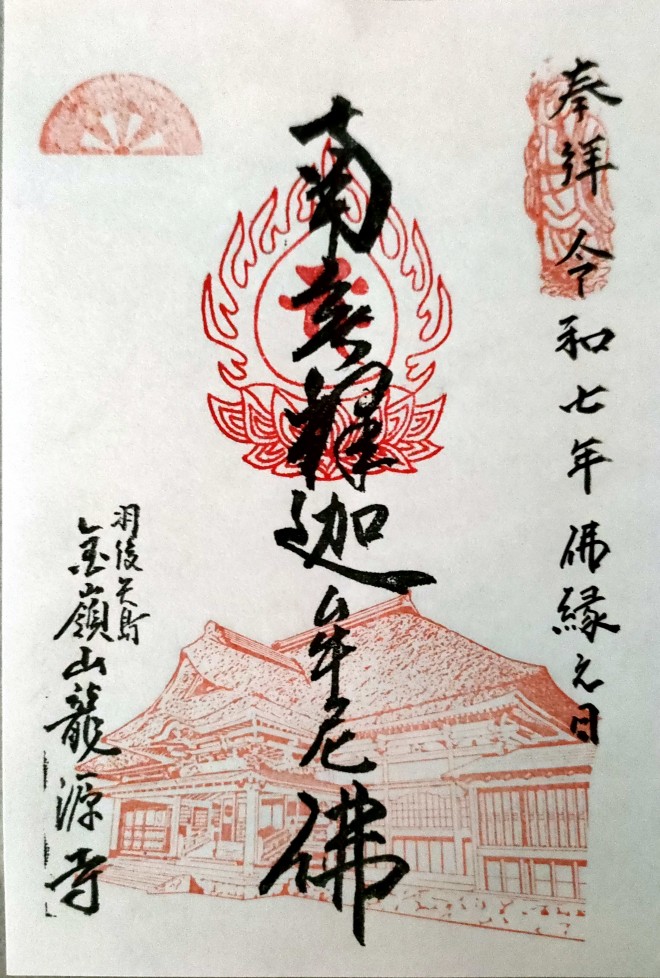 奉拝 令和七年 佛縁之日
南無釋迦牟尼佛
羽後矢島
金嶺山龍源寺